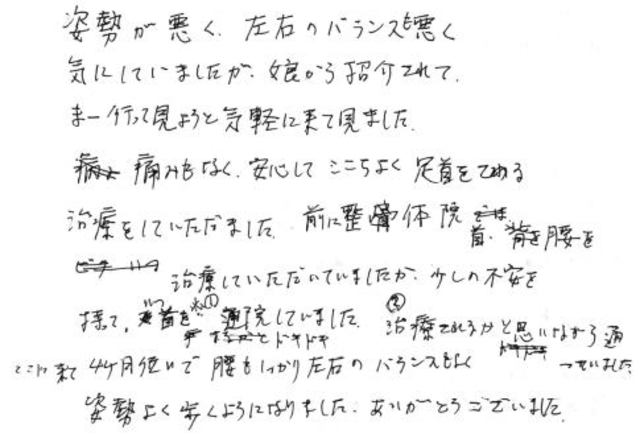 姿勢が悪く、左右のバランスも悪く
気にしていましたが、娘から紹介されて、
まー行って見ようと気軽に来て見ました。
痛みもなく、安心してここちよく足首をてめる
治療をしていただました。前に整骨体院
首、背を腰を
治療していただいていましたが、少しの不安を
持って、いつ首を 通院していました。② 治療されるかと思いながら通
ドキドキ
っていました
ここに来て 4ヶ月位いで腰もしっかり左右のバランスもよく
姿勢よく歩くようになりました。ありがとうございました。